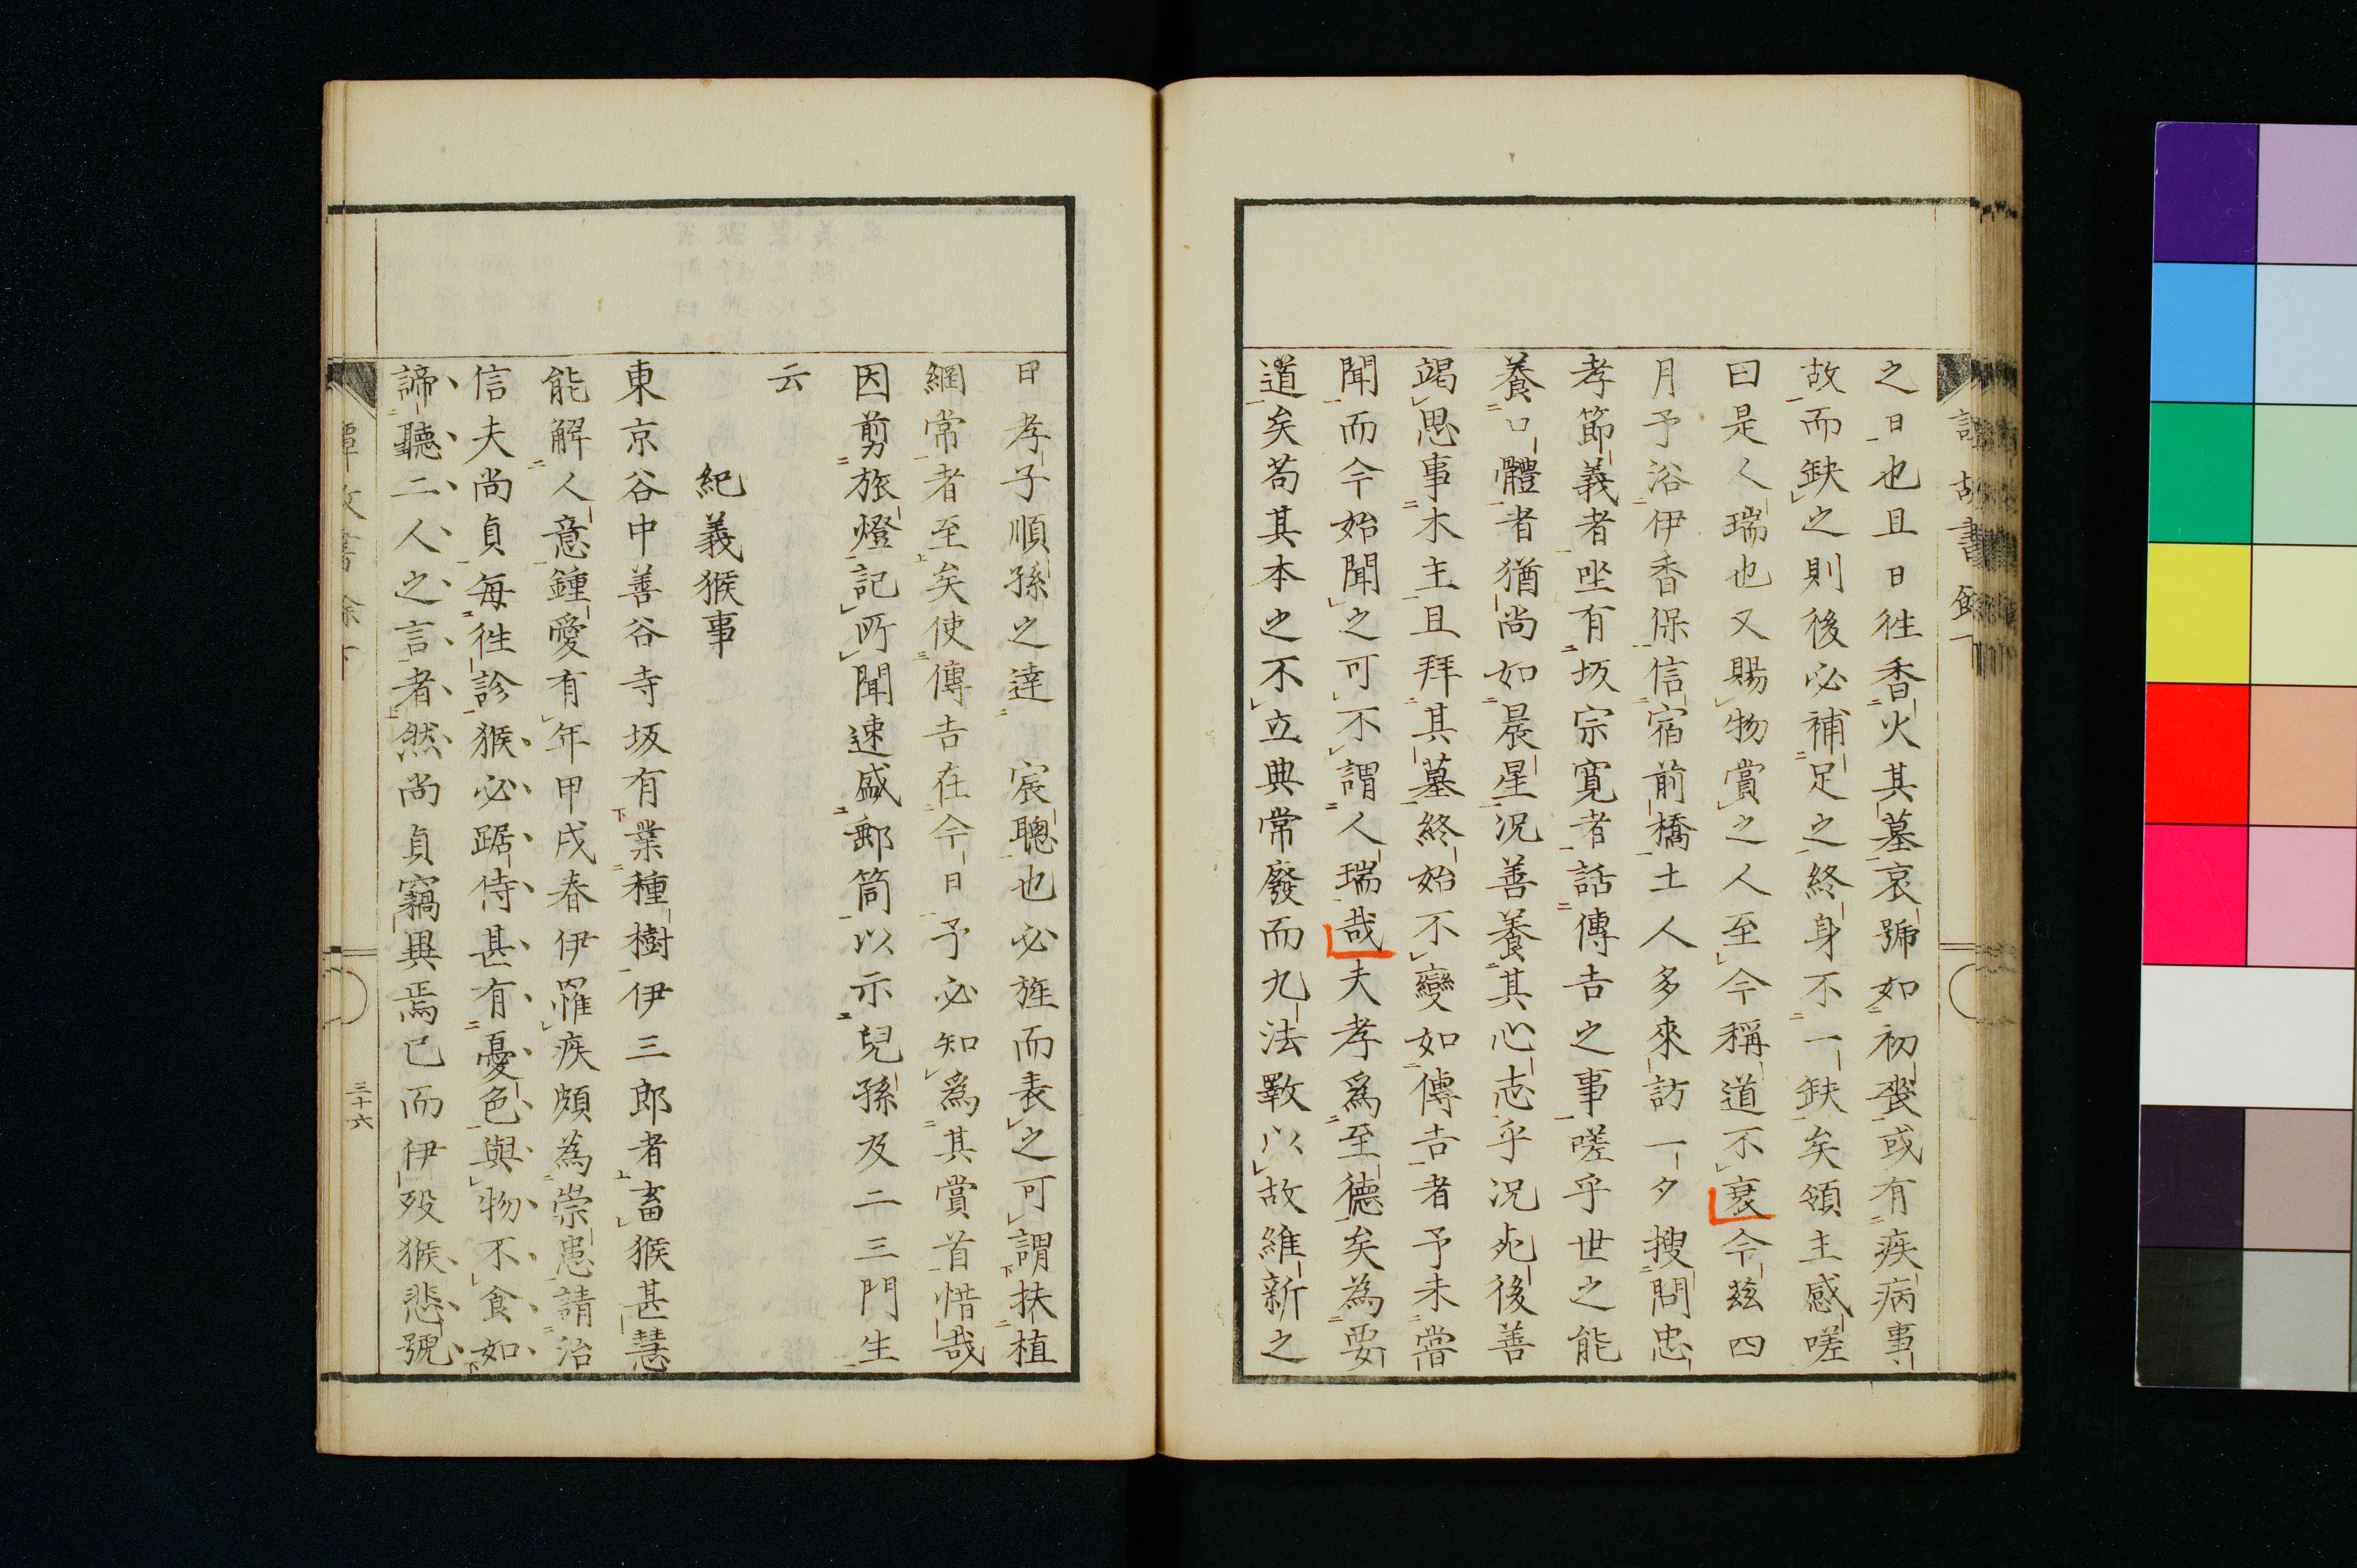 之日也且日徃香火其墓哀號如初喪或有疾病事
故而缺之則後必補足之終身不一缺矣領主感嗟
曰是人瑞也又賜物賞之人至今稱道不衰今玆四
月予浴伊香保信宿前橋土人多來訪一夕搜問忠
孝節義者坐有坂宗寛者話傳吉之事嗟乎世之能
養口體者猶尚如晨星況善養其心志乎況死後善
竭思事木主且拜其墓終始不變如傳吉者予未嘗
聞而今始聞之可不謂人瑞哉夫孝爲至德矣為要
道矣苟其本之不立典常廢而九法斁以故維新之
日孝子順孫之達　宸聰也必旌而表之可謂扶植
綱常者至矣使傳吉在今日予必知爲其賞首惜哉
因剪旅燈記所聞速盛郵筒以示兒孫及二三門生
云
紀義猴事
東京谷中善谷寺坂有業種樹伊三郎者畜猴甚慧
能解人意鍾愛有年甲戌春伊罹疾頗為祟患請治
信夫尚貞每徃診猴必踞侍甚有憂色與物不食如
諦聽二人之言者然尚貞竊異焉已而伊歿猴悲號
三十六